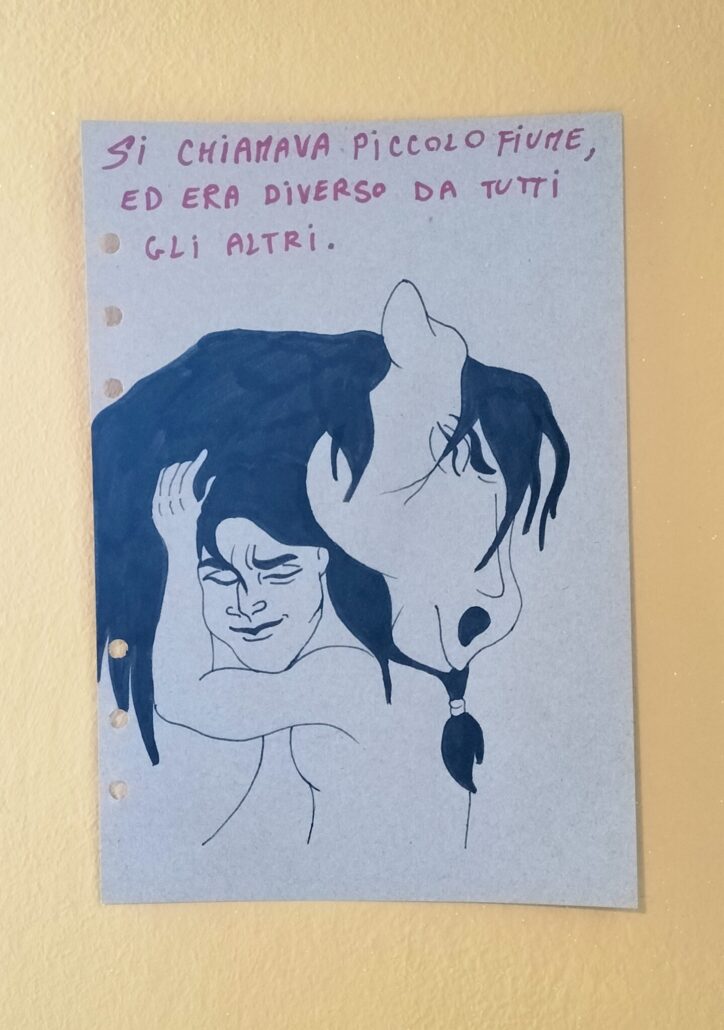 Si CHIAMAVA PiCCOLO FIUME,
ED ERA DiVERSO DA TUTTi
GLi ALTRi.